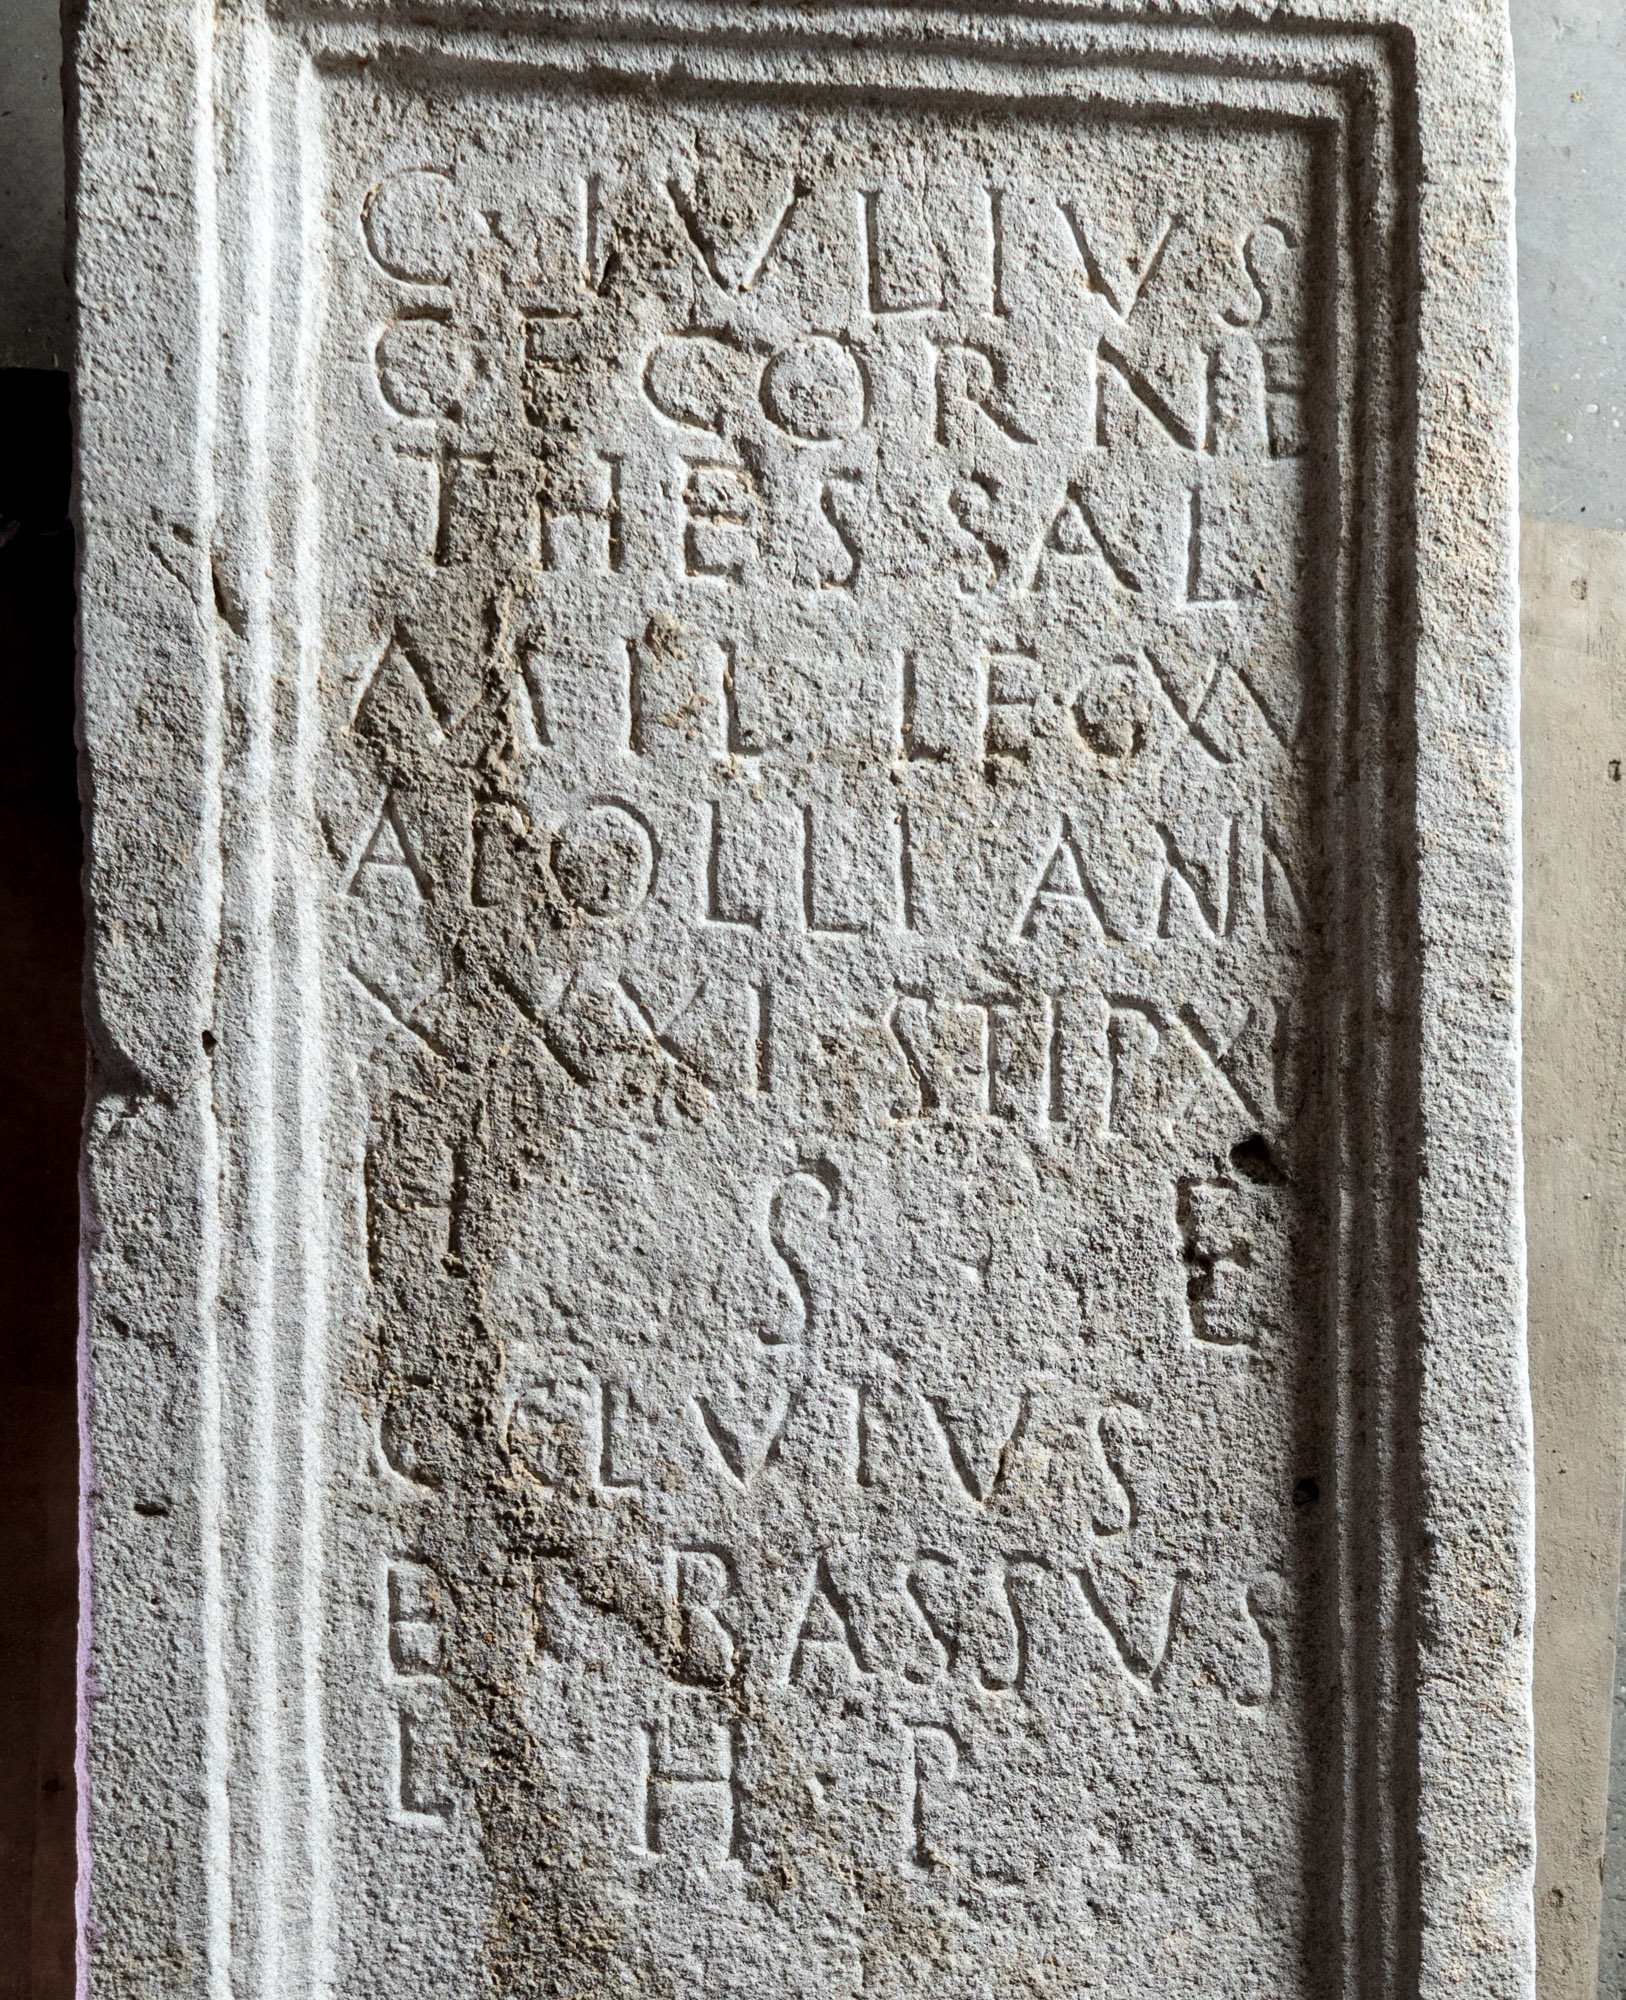 C · IVLIVS
C F CORNE
THESSAL
MIL LEG XV
APOLLI ANN
XXXI STIP VI
H S E
ET BASSVS
L H P